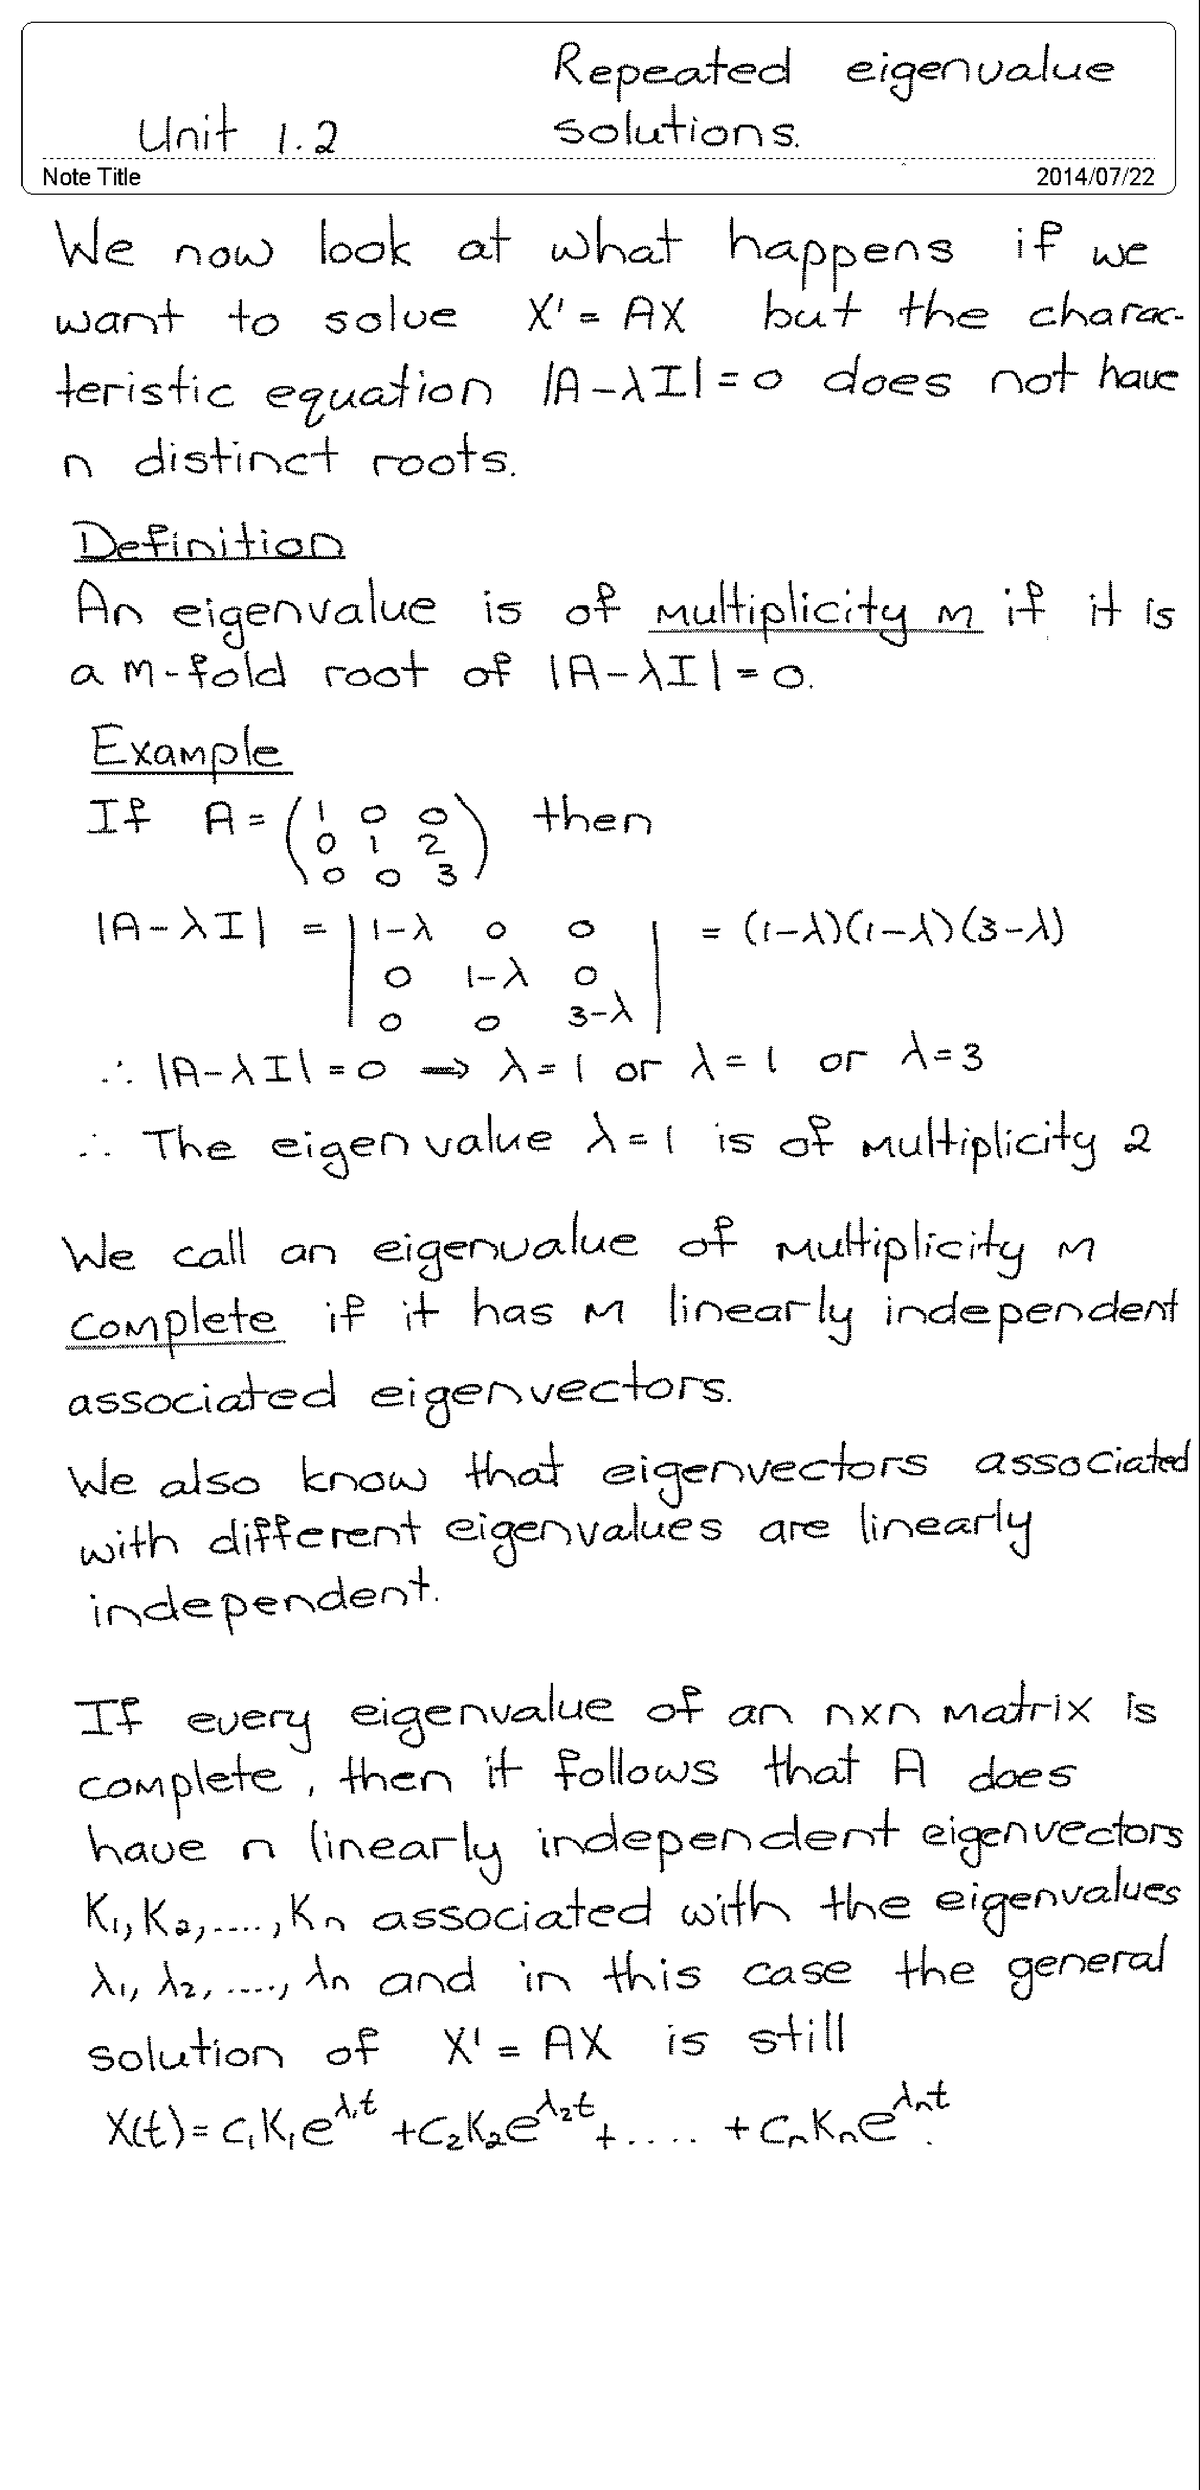 Repeated eigenvalue
Unit 1.2 solutions.
Note Title 2014/07/22
We now look at what happens if we
want to solve X' = AX but the charac-
teristic equation |A-λI|=0 does not have
n distinct roots.
Definition
An eigenvalue is of multiplicity m if it is
a m-fold root of |A-λI|=0.
Example
If A = ( 1 0 0 ) then
0 1 2
0 0 3
|A-λI| = | 1-λ 0 0 | = (1-λ)(1-λ)(3-λ)
0 1-λ 0
0 0 3-λ
∴ |A-λI|=0 ⇒ λ=1 or λ=1 or λ=3
∴ The eigenvalue λ=1 is of multiplicity 2
We call an eigenvalue of multiplicity m
complete if it has m linearly independent
associated eigenvectors.
We also know that eigenvectors associated
with different eigenvalues are linearly
independent.
If every eigenvalue of an nxn matrix is
complete, then it follows that A does
have n linearly independent eigenvectors
K₁, K₂, ...., Kn associated with the eigenvalues
λ₁, λ₂, ...., λn and in this case the general
solution of X' = AX is still
X(t) = c₁K₁e^λ₁t + c₂K₂e^λ₂t + .... + cₙKₙe^λₙt.